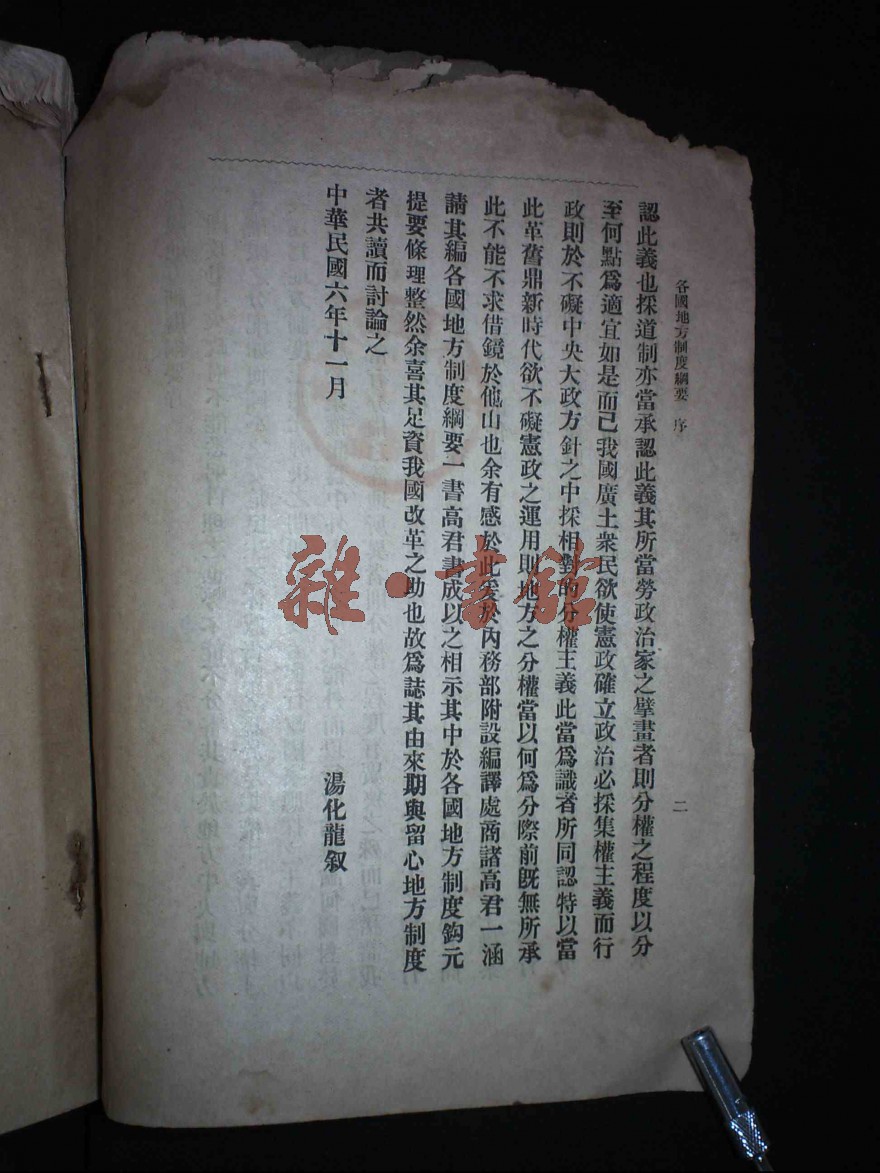 各國地方制度綱要 序
二
認此義也採道制亦當承認此義其所當勞政治家之擘畫者則分權之程度以分
至何點爲適宜如是而已我國廣土衆民欲使憲政確立政治必採集權主義而行
政則於不礙中央大政方針之中採相對的分權主義此當爲識者所同認特以當
此革舊鼎新時代欲不礙憲政之運用則地方之分權當以何爲分際前旣無所承
此不能不求借鏡於他山也余有感於此爰於內務部附設編譯處商諸高君一涵
請其編各國地方制度綱要一書高君書成以之相示其中於各國地方制度鈎元
提要條理整然余喜其足資我國改革之助也故爲誌其由來期與留心地方制度
者共讀而討論之
中華民國六年十一月
湯化龍叙
雜·書館